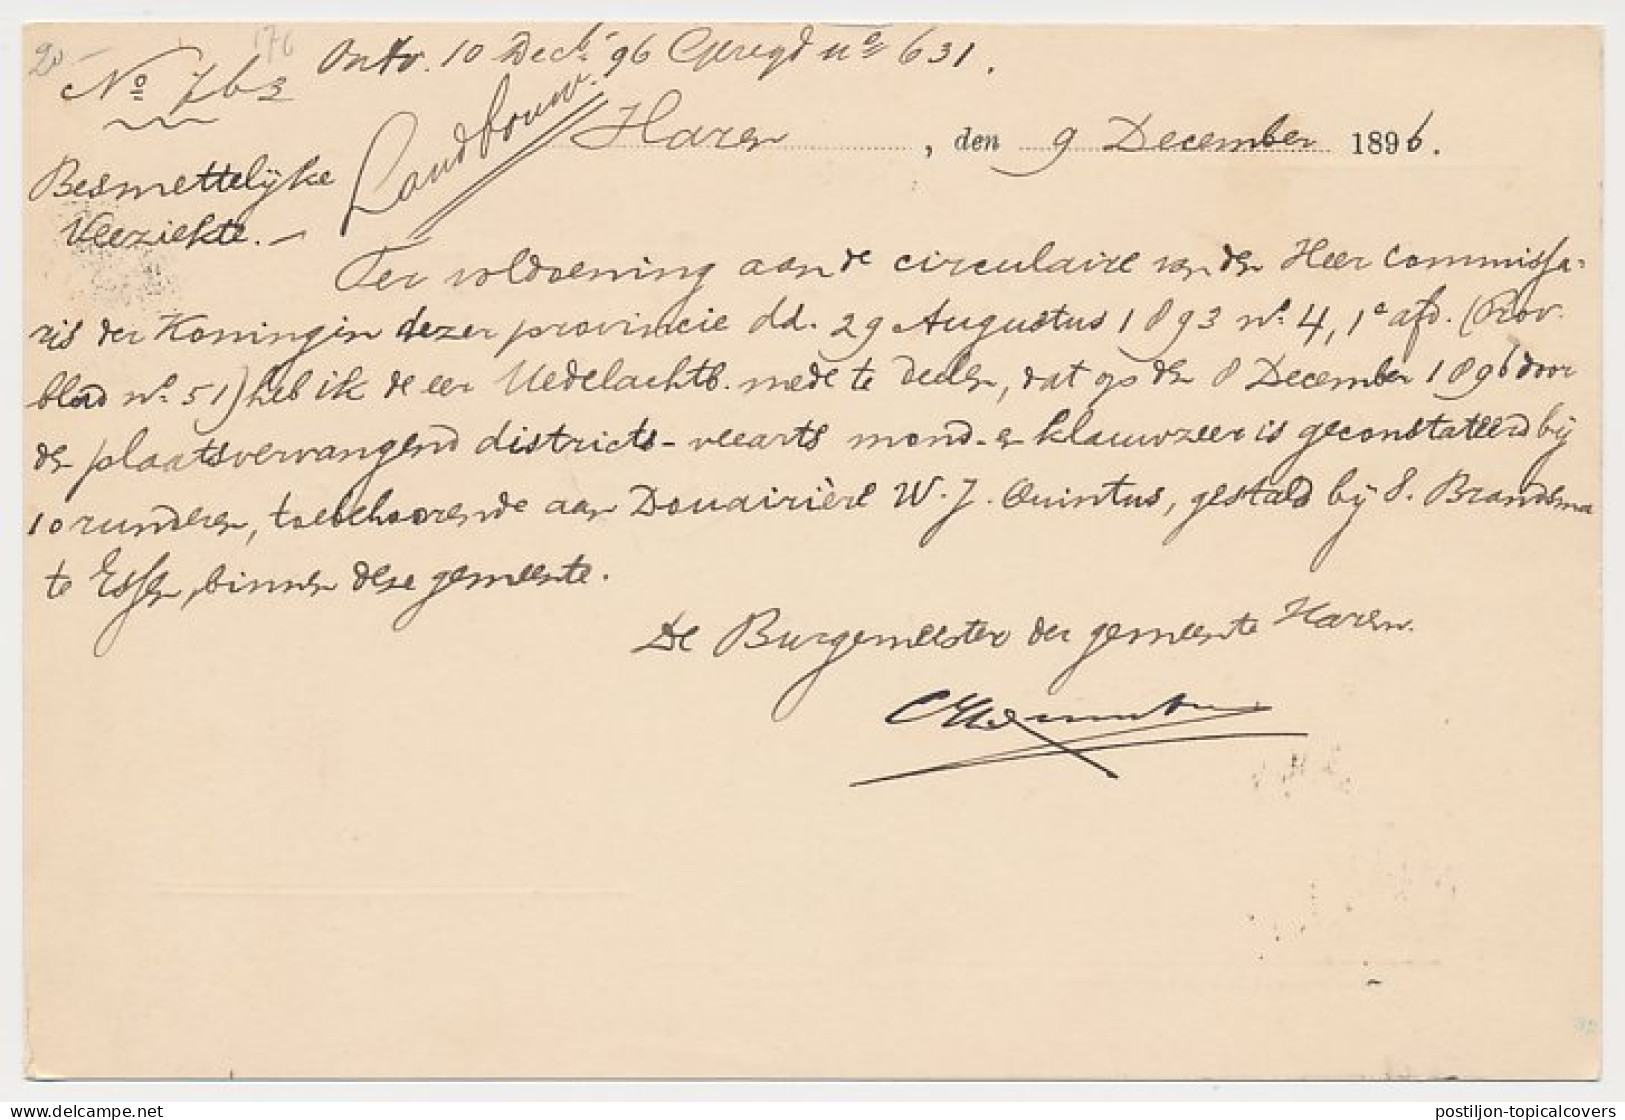 20 -
176
Ontv. 10 Dec. 96 Geregd no 631.
No 763
Landbouw.
Haren, den 9 December 1896.
Besmettelijke
Veeziekte. -
Ter voldoening aan de circulaire van den Heer Commissa-
ris der Koningin dezer provincie dd. 29 Augustus 1893 no. 4, 1e afd. (Prov.
blad no. 51) heb ik de eer UEdelachtb. mede te deelen, dat op den 8 December 1896 door
den plaatsvervangend districts-veearts mond- en klauwzeer is geconstateerd bij
10 runderen, toebehoorende aan Douairière W. J. Quintus, gestald bij S. Brandsma
te Essen, binnen deze gemeente.
De Burgemeester der gemeente Haren.
postiljon-topicalcovers